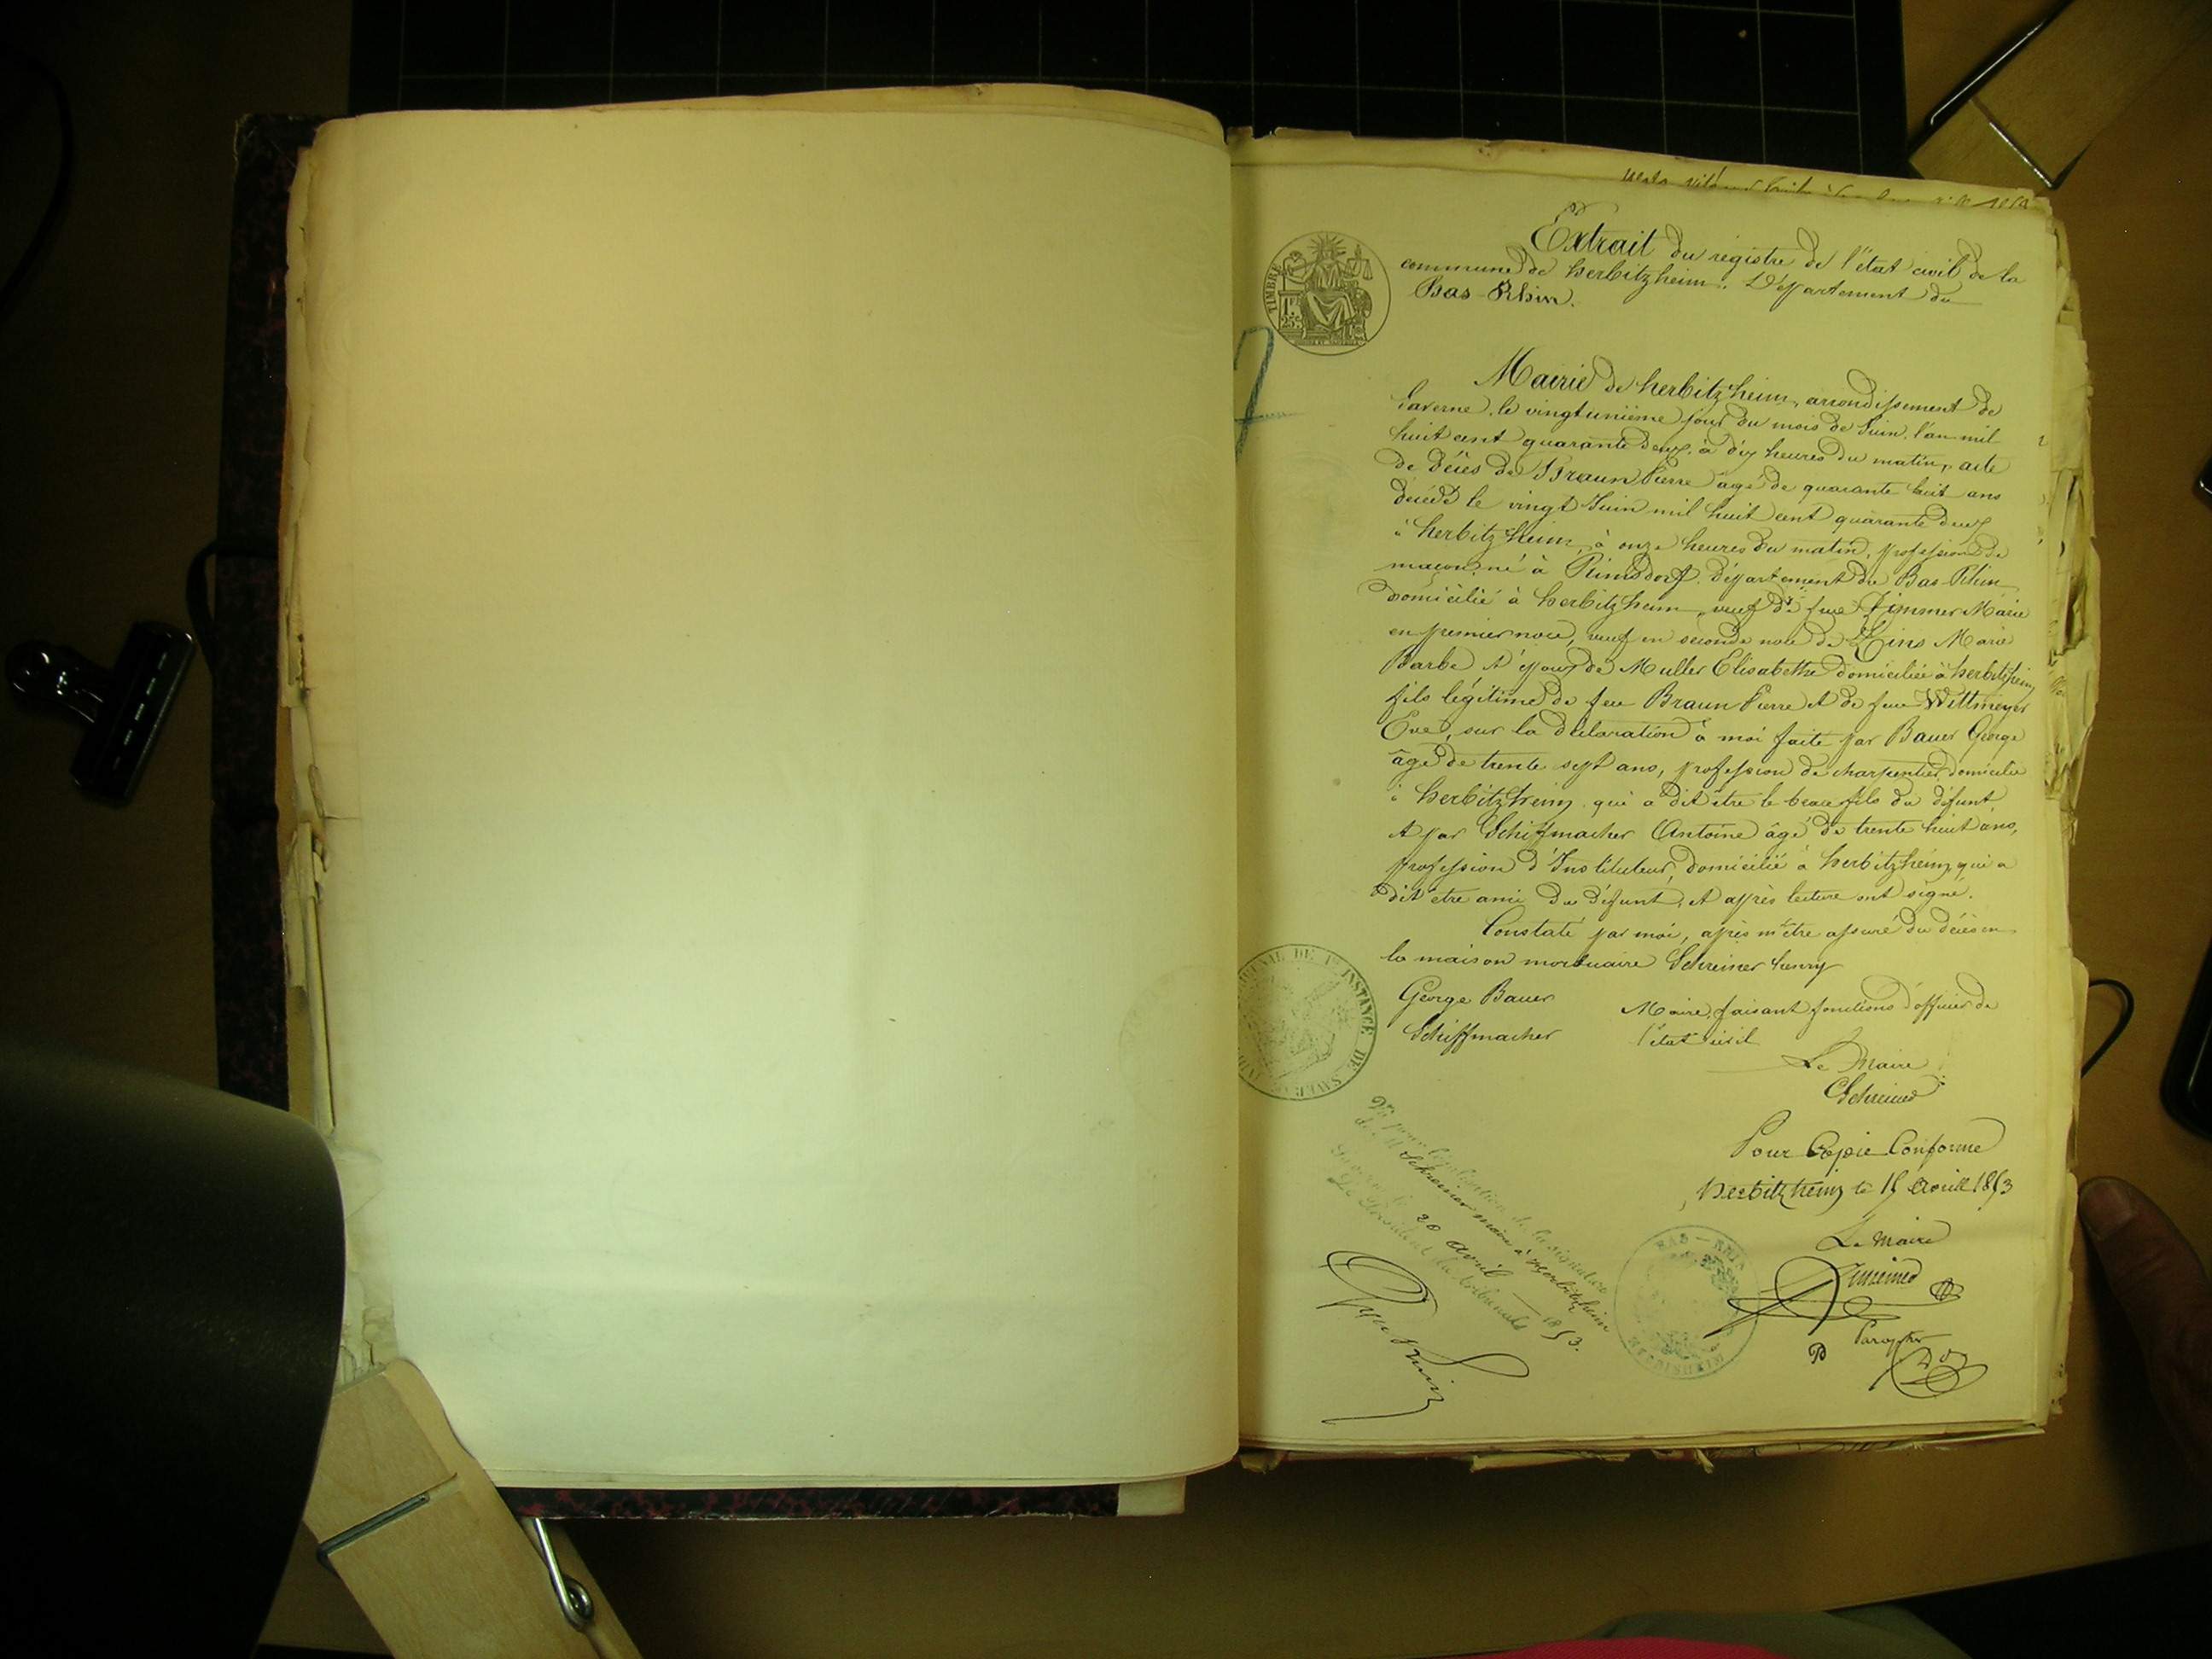 Extrait du registre de l'état civil de la
commune de herbitzheim. Département du
Bas-Rhin.
TIMBRE
1F.
25c
Mairie de herbitzheim, arrondissement de
Saverne, le vingtunième jour du mois de Juin, l'an mil
huit cent quarante deux, à dix heures du matin, acte
de décès de Braun Pierre âgé de quarante huit ans
décédé le vingt Juin mil huit cent quarante deux
à herbitzheim, à onze heures du matin, profession de
maçon, né à Rimsdorf, département du Bas-Rhin
domicilié à herbitzheim, veuf de feue Zimmer Marie
en premier noce, veuf en seconde noce de Zins Marie
Barbe et époux de Muller Elisabethe domiciliée à herbitzheim
fils légitime de feu Braun Pierre et de feue Wittmeyer
Eve, sur la déclaration à moi faite par Bauer George
âgé de trente sept ans, profession de charpentier, domicilié
à herbitzheim qui a dit être le beau fils du défunt,
et par Schiffmacher Antoine âgé de trente huit ans,
profession d'Instituteur, domicilié à herbitzheim, qui a
dit être ami du défunt, et après lecture ont signé.
Constaté par moi, après m'être assuré du décès en
la maison mortuaire Schreiner henry
George Bauer
Schiffmacher
Maire, faisant fonctions d'officier de
l'état civil
Le Maire
Schreiner
TRIBUNAL DE 1re INSTANCE DE SAVERNE
Pour Copie Conforme
herbitzheim le 15 Avrill 1853
Le Maire
Schreiner
Vu pour légalisation de la signature
de M Schreiner maire à herbitzheim
Saverne le 20 avril 1853.
Le Président du tribunal
BAS-RHIN